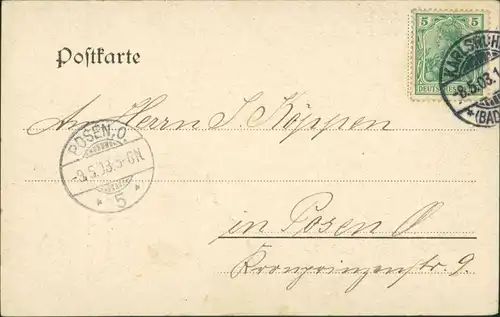 Postkarte
5 5
DEUTSCHES REICH
KARLSRUHE
-8.5.03.1
*(BAD
An Herrn S. Köppen
POSEN.O.
-9.5.03.5-6N.
* 5 *
in Posen O
Kronprinzenstr. 9.